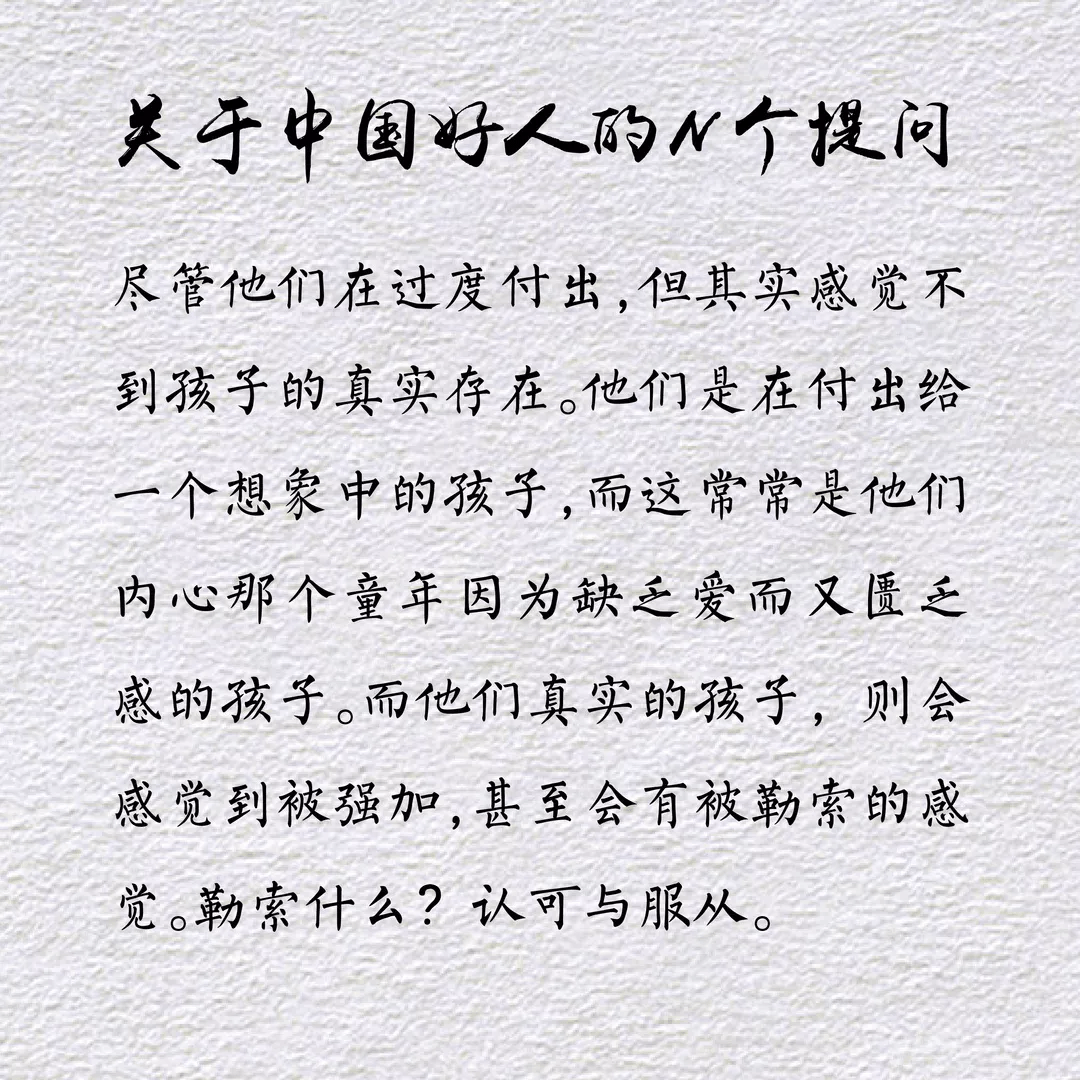 关于中国好人的N个提问
尽管他们在过度付出,但其实感觉不
到孩子的真实存在。他们是在付出给
一个想象中的孩子,而这常常是他们
内心那个童年因为缺乏爱而又匮乏
感的孩子。而他们真实的孩子，则会
感觉到被强加,甚至会有被勒索的感
觉。勒索什么？认可与服从。